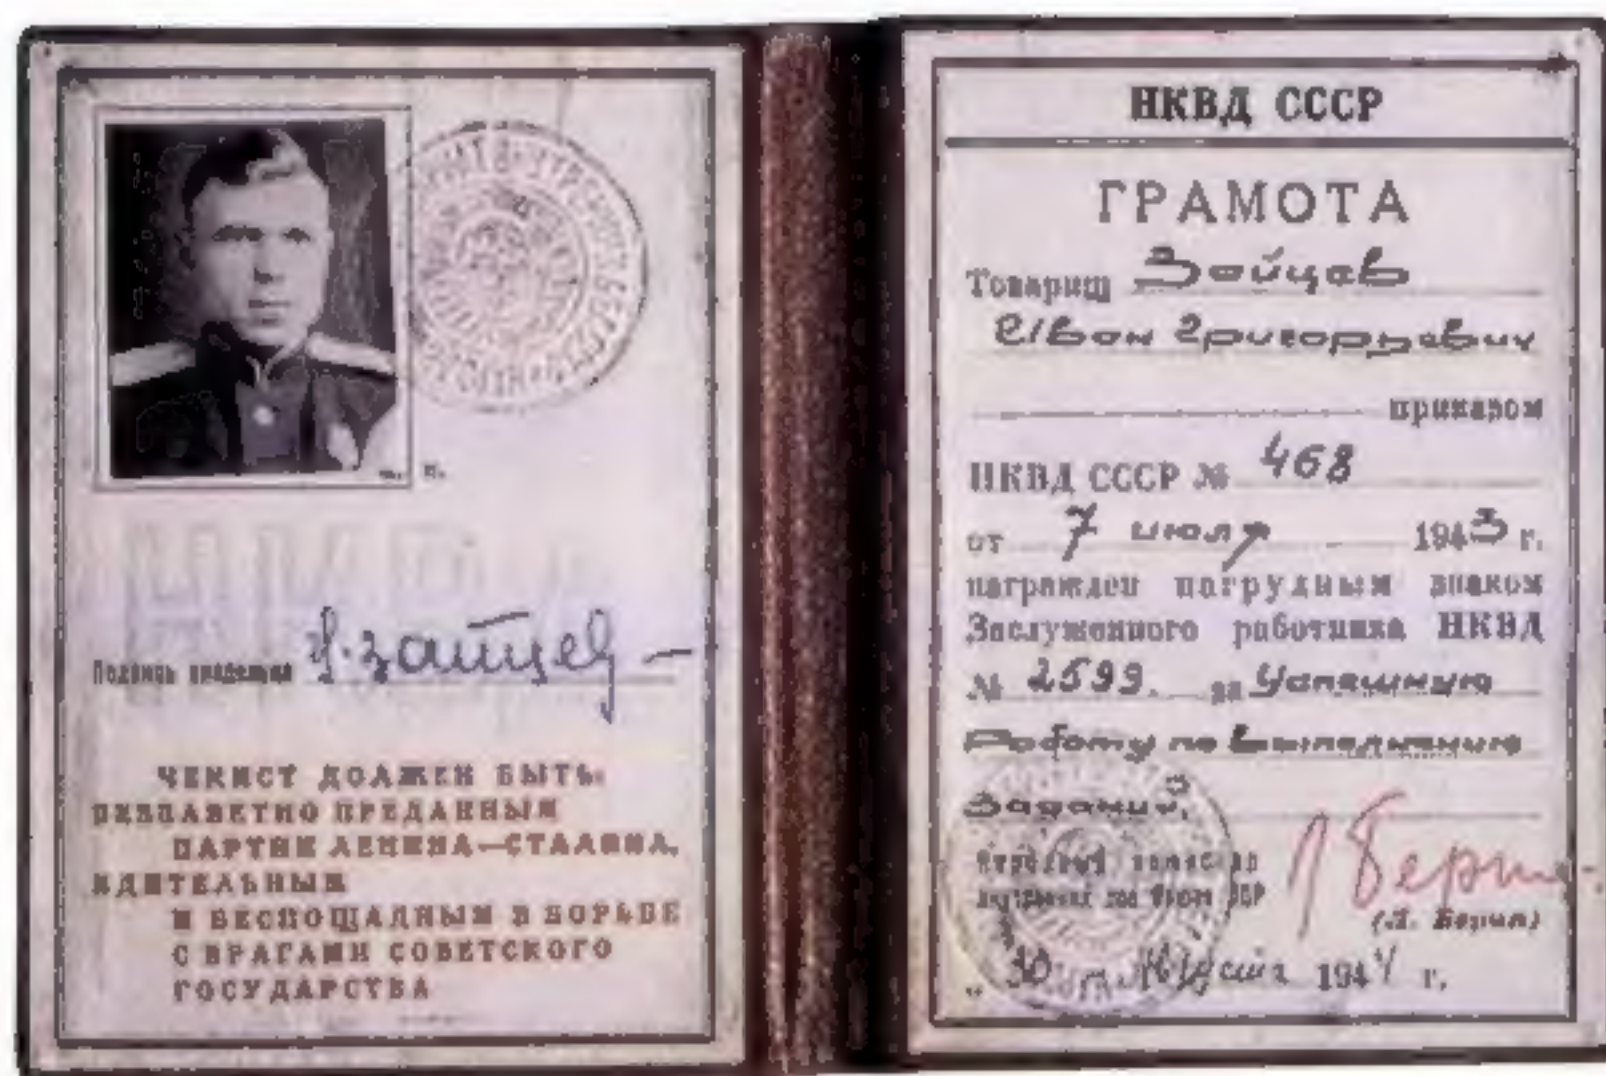 м. п.
Подпись владельца И. Зайцев
ЧЕКИСТ ДОЛЖЕН БЫТЬ:
БЕЗЗАВЕТНО ПРЕДАННЫМ
ПАРТИИ ЛЕНИНА—СТАЛИНА,
БДИТЕЛЬНЫМ
И БЕСПОЩАДНЫМ В БОРЬБЕ
С ВРАГАМИ СОВЕТСКОГО
ГОСУДАРСТВА
НКВД СССР
ГРАМОТА
Товарищ Зайцев
Иван Григорьевич
приказом
НКВД СССР № 468
от 7 июля 1943 г.
награжден нагрудным знаком
Заслуженного работника НКВД
№ 2599. за Успешную
Работу по выполнению
Заданий.
Народный комиссар
внутренних дел Союза ССР
Л Берия
(Л. Берия)
„ 30 Августа 1944 г.